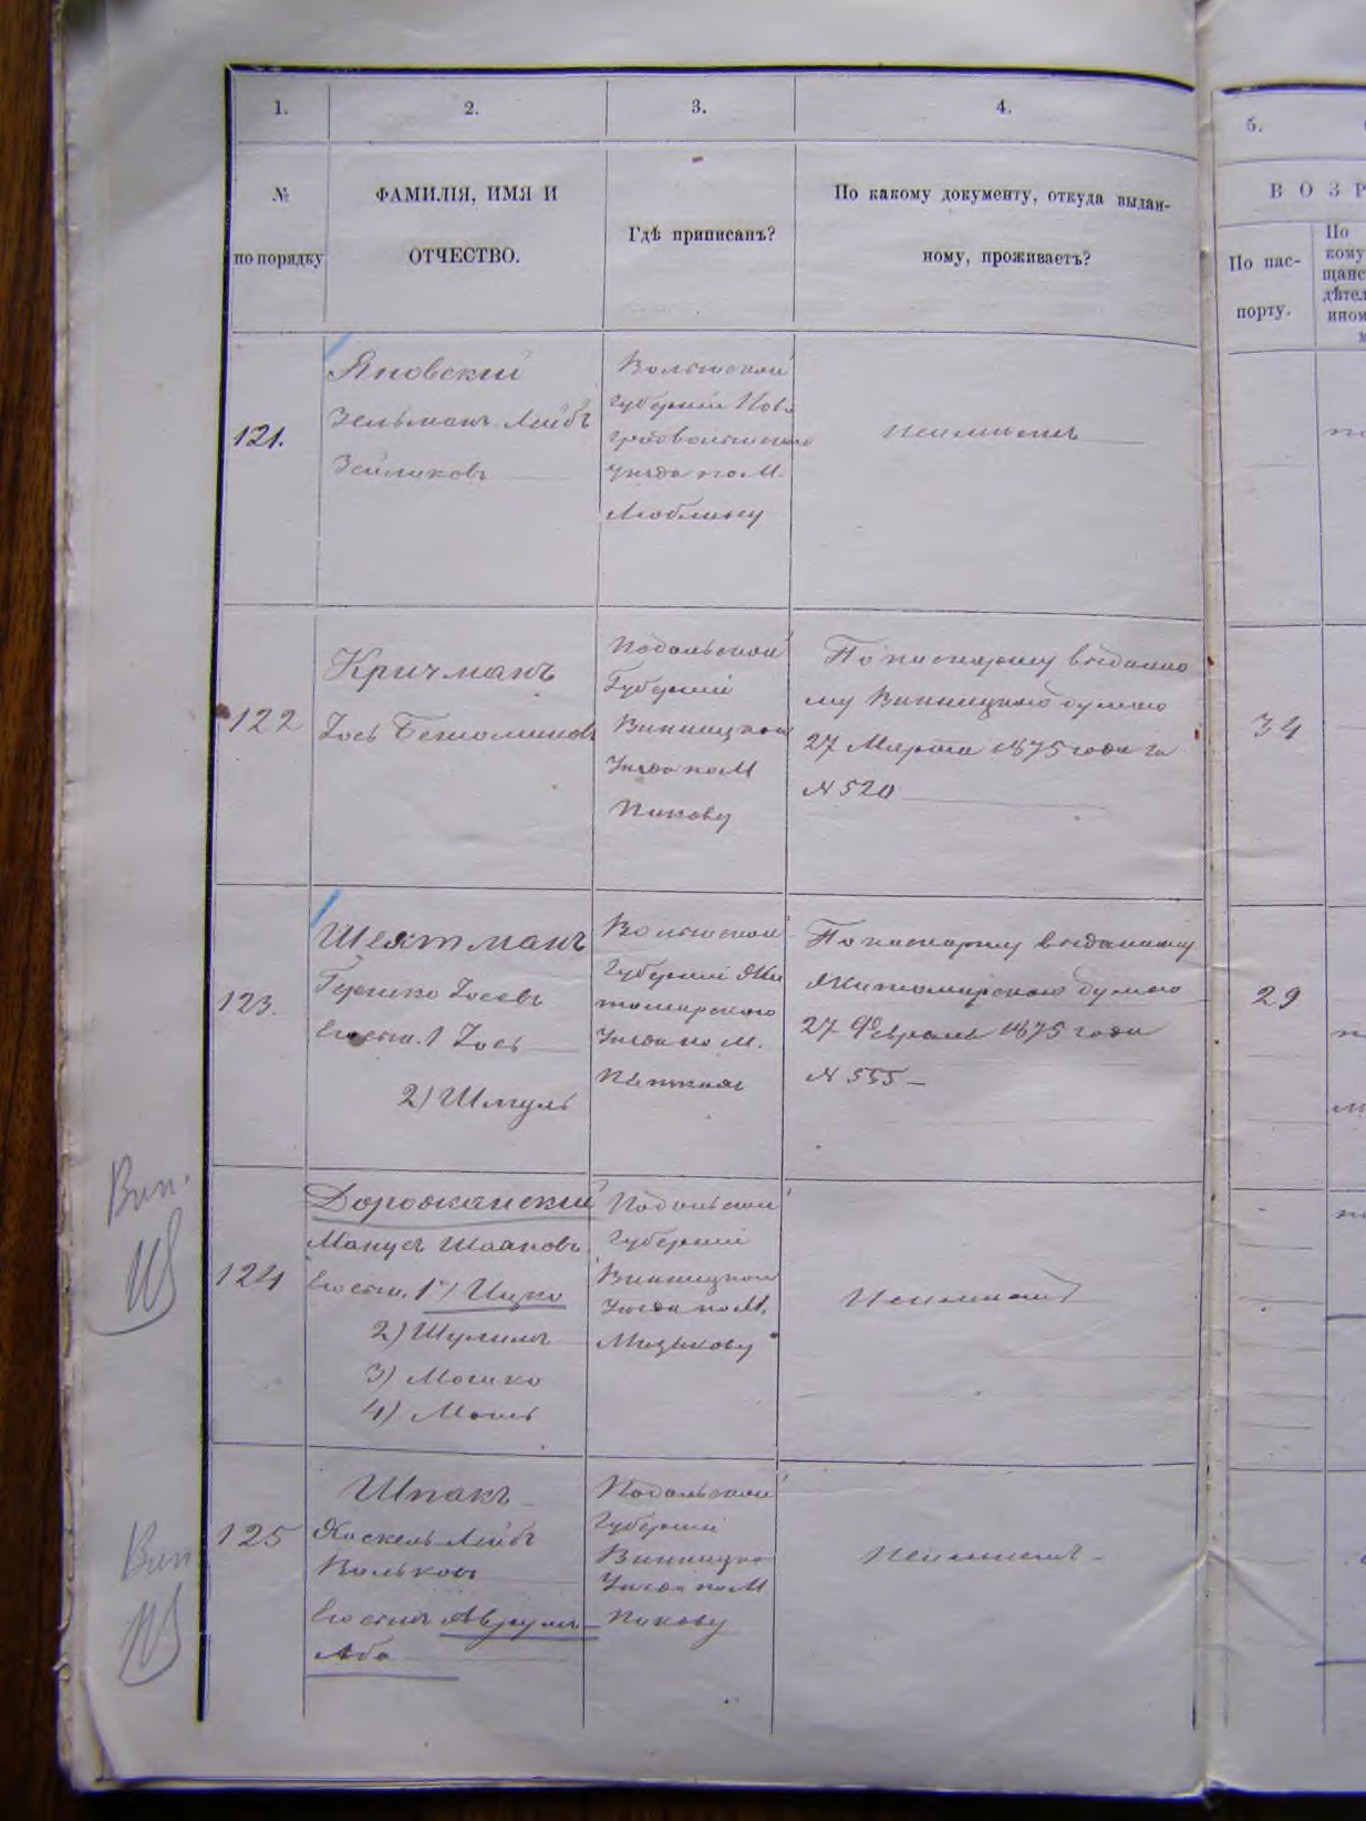 1.
2.
3.
4.
5.
№
по порядку
ФАМИЛІЯ, ИМЯ И
ОТЧЕСТВО.
Гдѣ приписанъ?
По какому документу, откуда выдан-
ному, проживаетъ?
ВОЗР
По пас-
порту.
По
кому
щанс
дѣтел
ином
121.
Яновскій
Зельманъ Лейбъ
Зейликовъ
Волынской
Губерніи Нов
градволынскаго
Уѣзда по М.
Люблину
неимѣетъ
122
Кричманъ
Іось Беніоминовъ
Подольской
Губерніи
Винницкой
Уѣзда по М
Пикову
По паспорту выданно
му Винницкою думою
27 Марта 1875 года за
№ 520
34
123.
Шехтманъ
Гершко Іосевъ
Его сын. 1 Іось
2) Шмуль
Волынской
Губерніи Жи
томирскаго
Уѣзда по М.
По паспорту выданному
Житомирскою думою
27 Февраля 1875 года
№ 555
29
Вин.
124
Дорожанскій
Манусъ Шааповъ
Его сын. 1) Ицко
2) Шулимъ
3) Мошко
4)
Подольской
Губерніи
Винницкой
Уѣзда по М.
Мизякову
Неимѣетъ
Вин
125
Шпакъ
Хаскель Лейбъ
Вольковъ
Его сынъ Аврумъ
Аба
Подольской
Губерніи
Винницко
Уѣзда по М
Пикову
Неимѣетъ